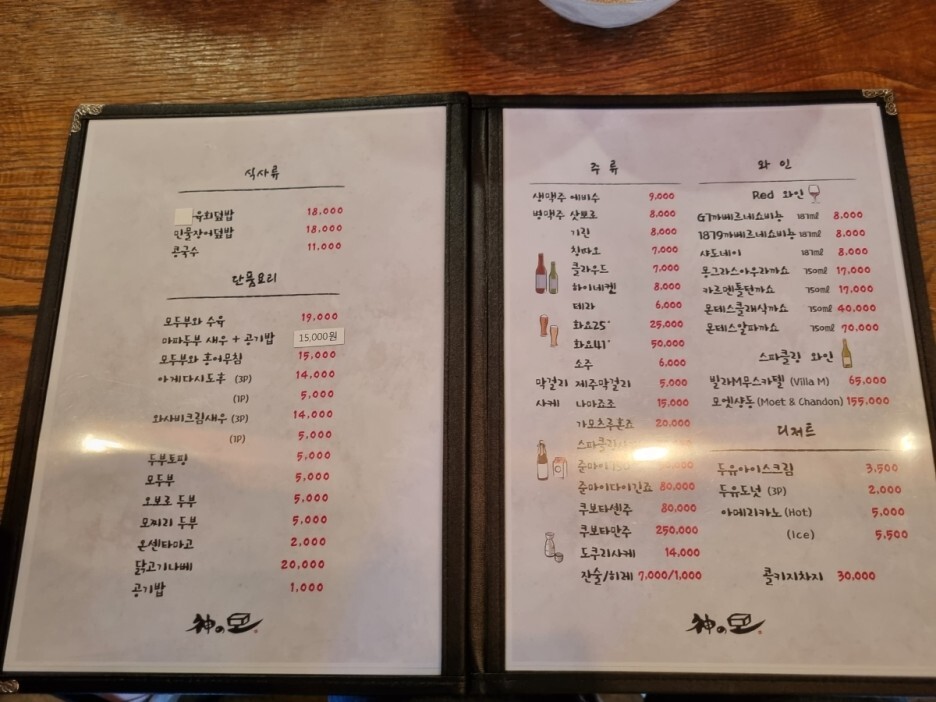 식사류
육회덮밥 18,000
민물장어덮밥 18,000
콩국수 11,000
단품요리
모두부와 수육 19,000
마파두부 새우 + 공기밥 15,000원
모두부와 홍어무침 15,000
아게다시도후 (3P) 14,000
(1P) 5,000
와사비크림새우 (3P) 14,000
(1P) 5,000
두부토핑 5,000
모두부 5,000
오보로 두부 5,000
모찌리 두부 5,000
온센타마고 2,000
닭고기나베 20,000
공기밥 1,000
神の豆
주 류
생맥주 에비수 9,000
병맥주 삿뽀로 8,000
기린 8,000
칭따오 7,000
클라우드 7,000
하이네켄 8,000
테라 6,000
화요25° 25,000
화요41° 50,000
소주 6,000
막걸리 제주막걸리 5,000
사케 나마죠조 15,000
가모츠루혼죠 20,000
스파클링
준마이
준마이다이긴죠 80,000
쿠보타센주 80,000
쿠보타만주 250,000
도쿠리사케 14,000
잔술/히레 7,000/1,000
와 인
Red 와인
G7까베르네쇼비뇽 187ml 8,000
1879까베르네쇼비뇽 187ml 8,000
샤도네이 187ml 8,000
몽그라스아우라까쇼 750ml 17,000
카르멘톨턴까쇼 750ml 17,000
몬테스클래식까쇼 750ml 40,000
몬테스알파까쇼 750ml 70,000
스파클링 와인
빌라M무스카텔 (Villa M) 65,000
모엣샹동 (Moet & Chandon) 155,000
디저트
두유아이스크림 3,500
두유도넛 (3P) 2,000
아메리카노 (Hot) 5,000
(Ice) 5,500
콜키지차지 30,000
神の豆